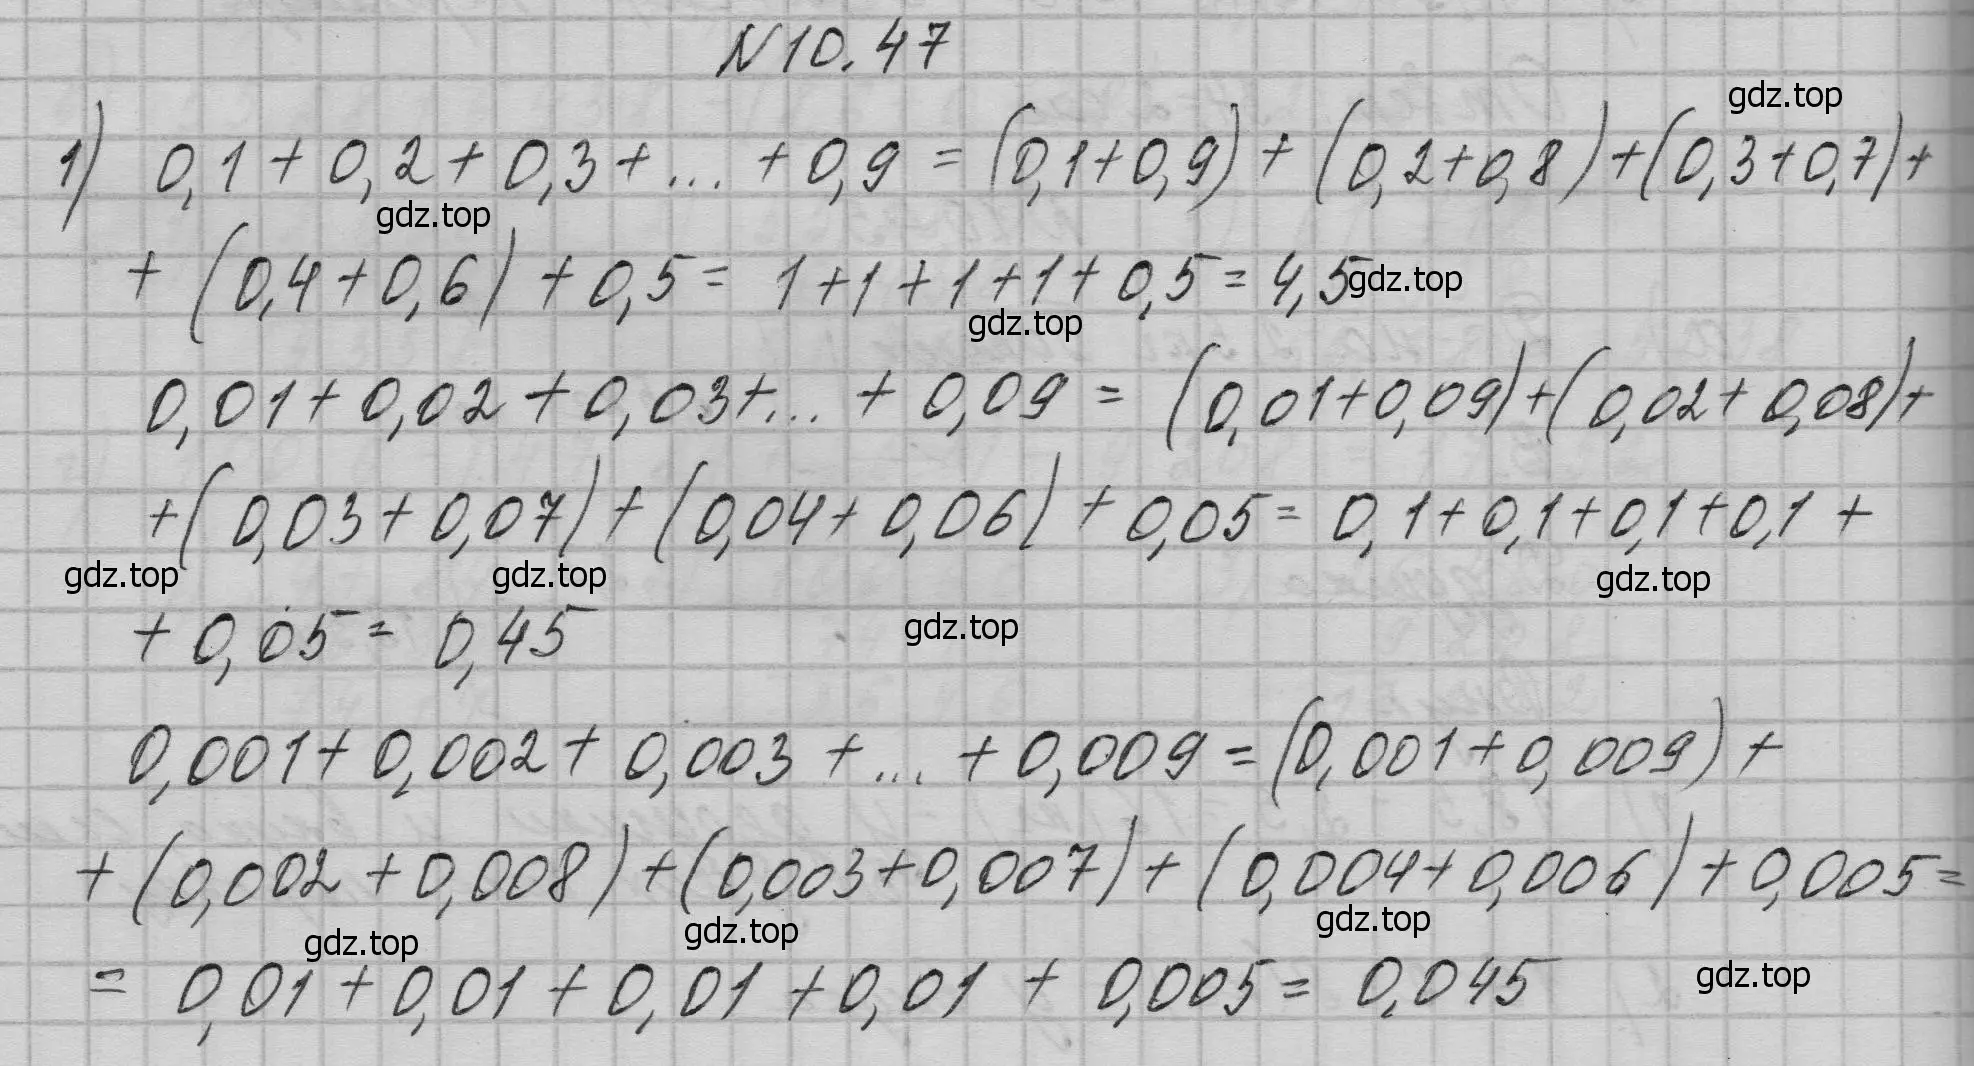 N10.47
gdz.top
1) 0,1+0,2+0,3+...+0,9=(0,1+0,9)+(0,2+0,8)+(0,3+0,7)+
gdz.top
+(0,4+0,6)+0,5=1+1+1+1+0,5=4,5
gdz.top
gdz.top
0,01+0,02+0,03+...+0,09=(0,01+0,09)+(0,02+0,08)+
+(0,03+0,07)+(0,04+0,06)+0,05=0,1+0,1+0,1+0,1+
gdz.top gdz.top gdz.top
+0,05=0,45
gdz.top
0,001+0,002+0,003+...+0,009=(0,001+0,009)+
+(0,002+0,008)+(0,003+0,007)+(0,004+0,006)+0,005=
gdz.top gdz.top gdz.top
=0,01+0,01+0,01+0,01+0,005=0,045
gdz.top